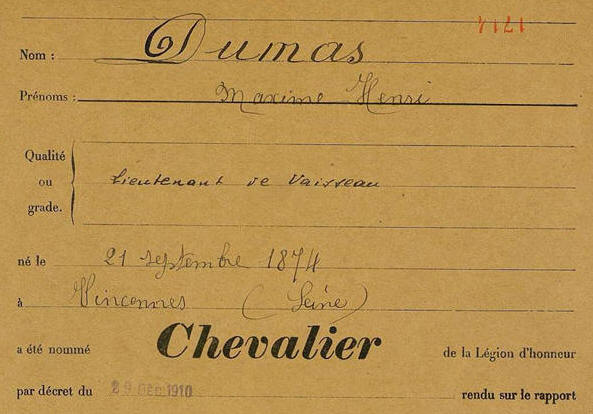 Nom : Dumas
Prénoms : Maxime Henri
Qualité
ou
grade.
Lieutenant de Vaisseau
né le 21 septembre 1874
à Vincennes (Seine)
a été nommé Chevalier de la Légion d'honneur
par décret du 29 DÉC 1910 rendu sur le rapport